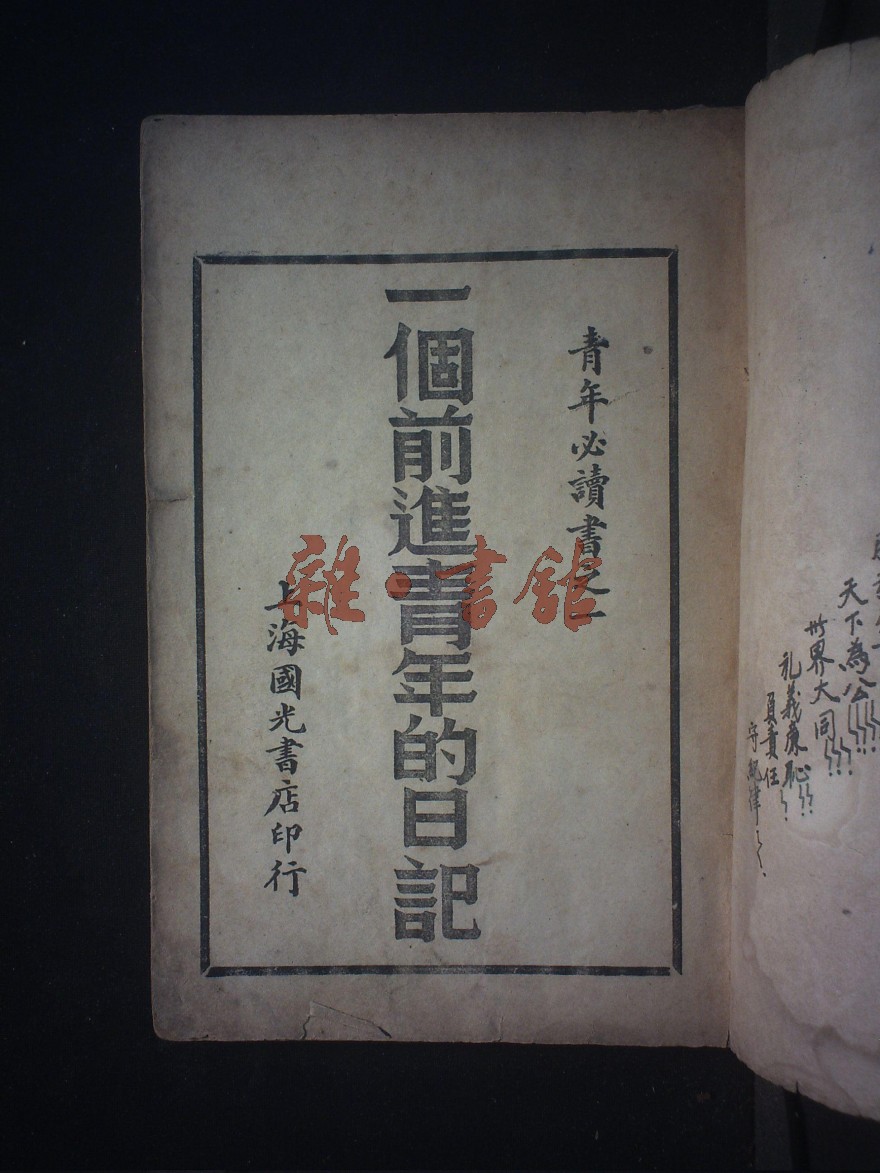 天下為公
世界大同
礼義廉恥
負責任
守紀律
青年必讀書之一
一個前進青年的日記
上海國光書店印行
雜·書館